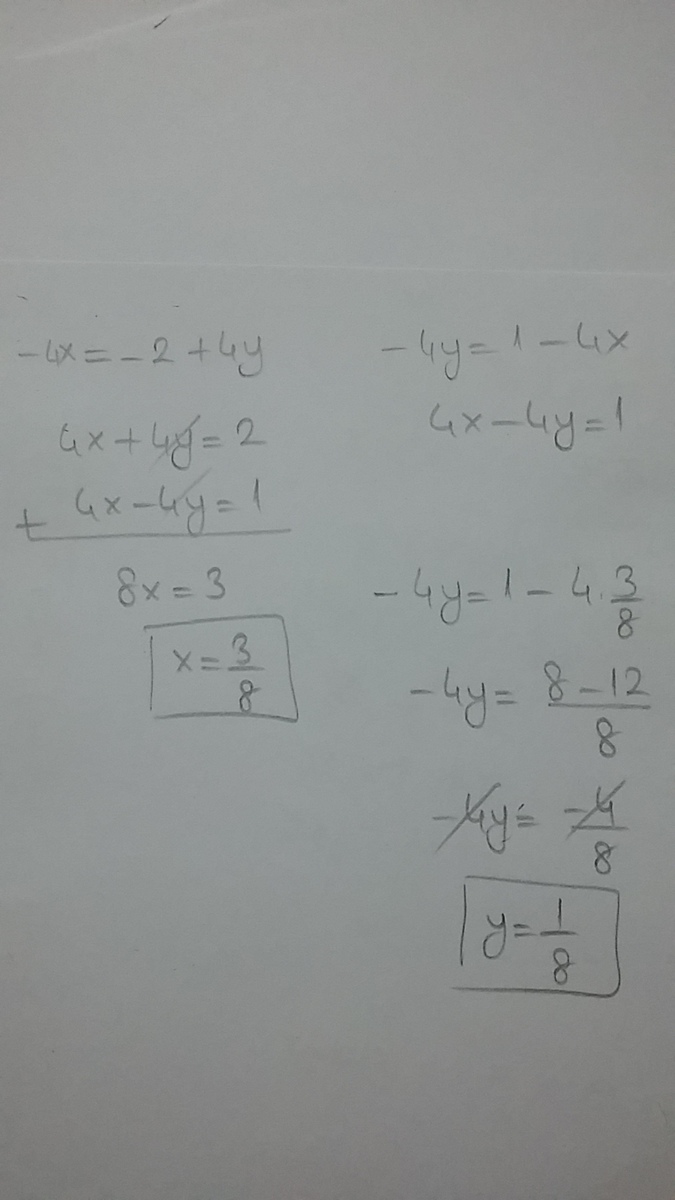 -4x = -2 + 4y
4x + 4y = 2
+ 4x - 4y = 1
8x = 3
x = 3/8
-4y = 1 - 4x
4x - 4y = 1
-4y = 1 - 4 · 3/8
-4y = (8 - 12)/8
-4y = -4/8
y = 1/8